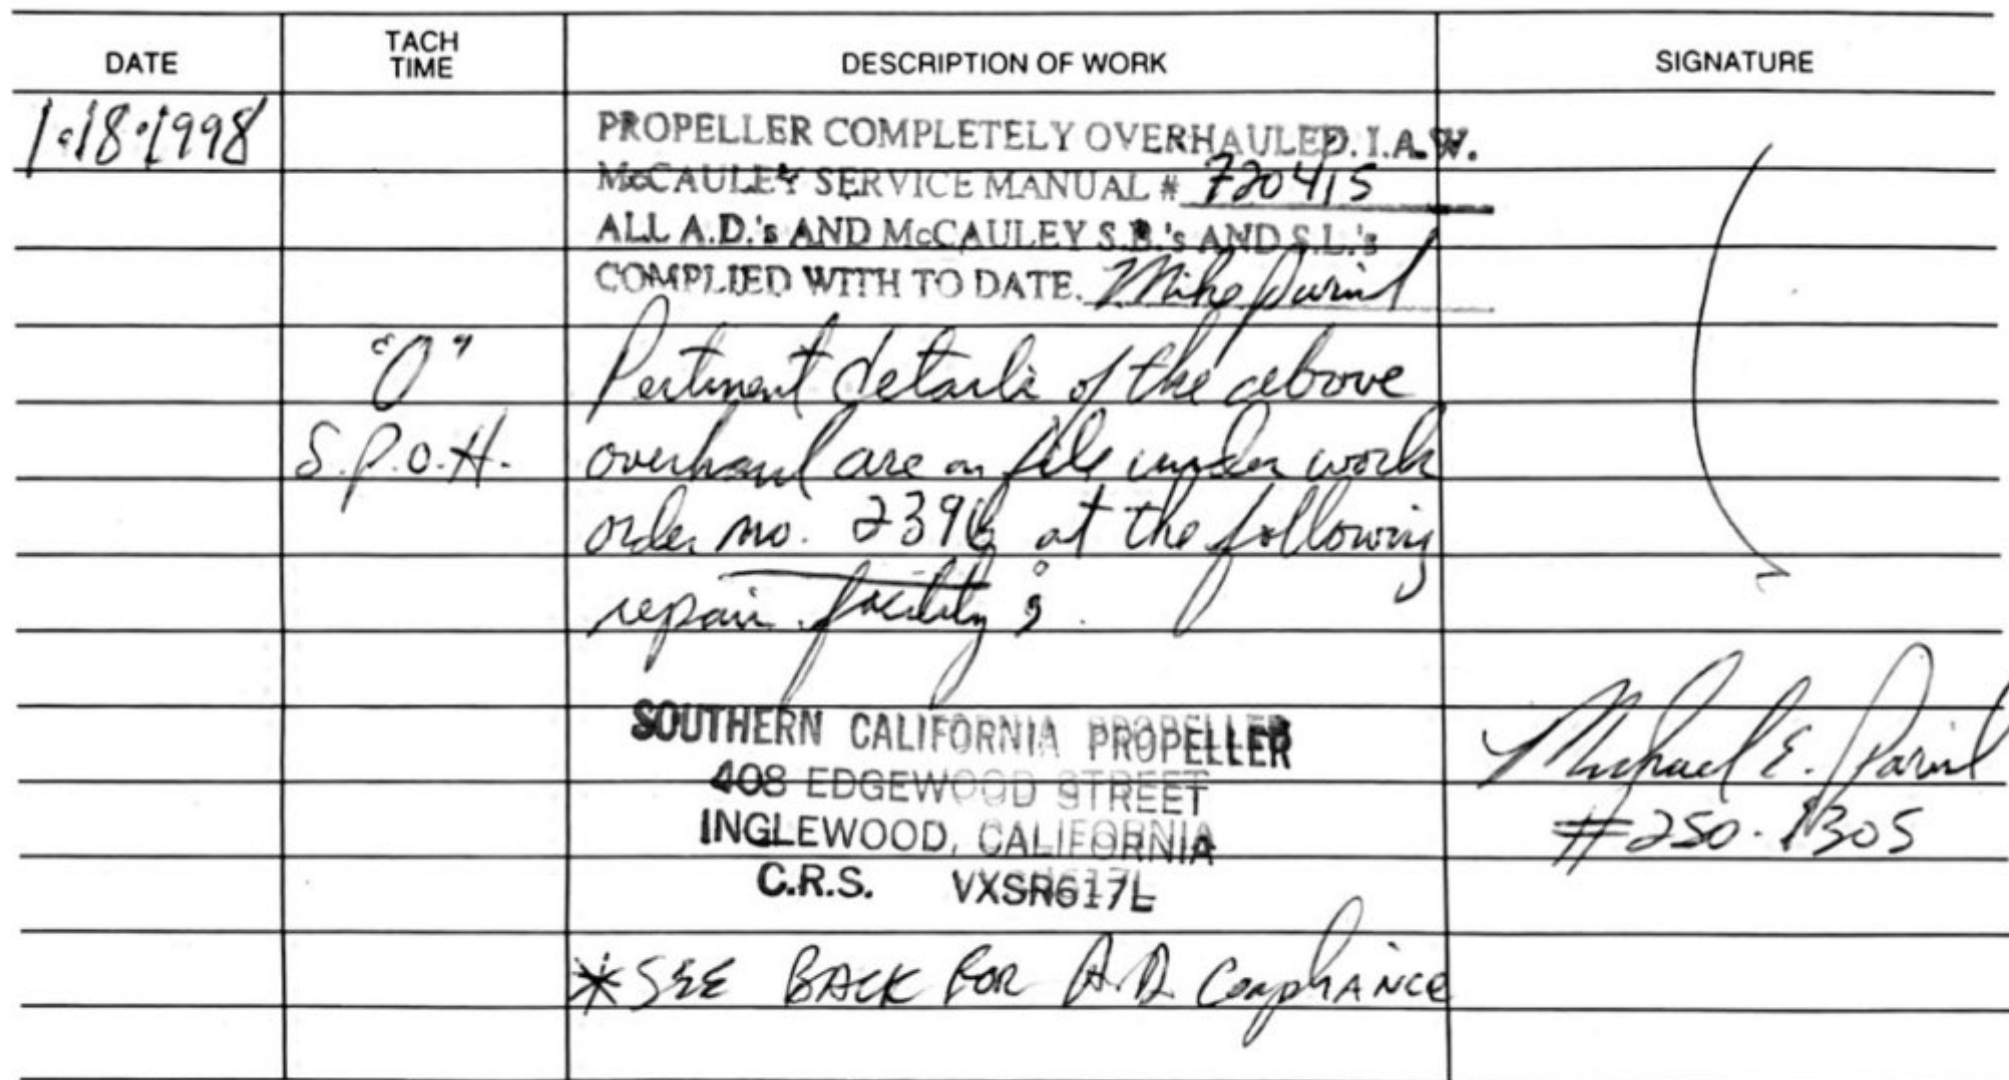 DATE TACH TIME DESCRIPTION OF WORK SIGNATURE
1-18-1998 PROPELLER COMPLETELY OVERHAULED. I.A.W.
McCAULEY SERVICE MANUAL # 720415
ALL A.D.'s AND McCAULEY S.B.'s AND S.L.'s
COMPLIED WITH TO DATE. Mike
"0" Pertinent details of the above
S.P.O.H. overhaul are on file under work
order no. at the following
repair facility:
SOUTHERN CALIFORNIA PROPELLER
408 EDGEWOOD STREET
Michael E.
INGLEWOOD, CALIFORNIA
#250-1305
C.R.S. VXSR617L
*SEE BACK FOR A.D. Compliance